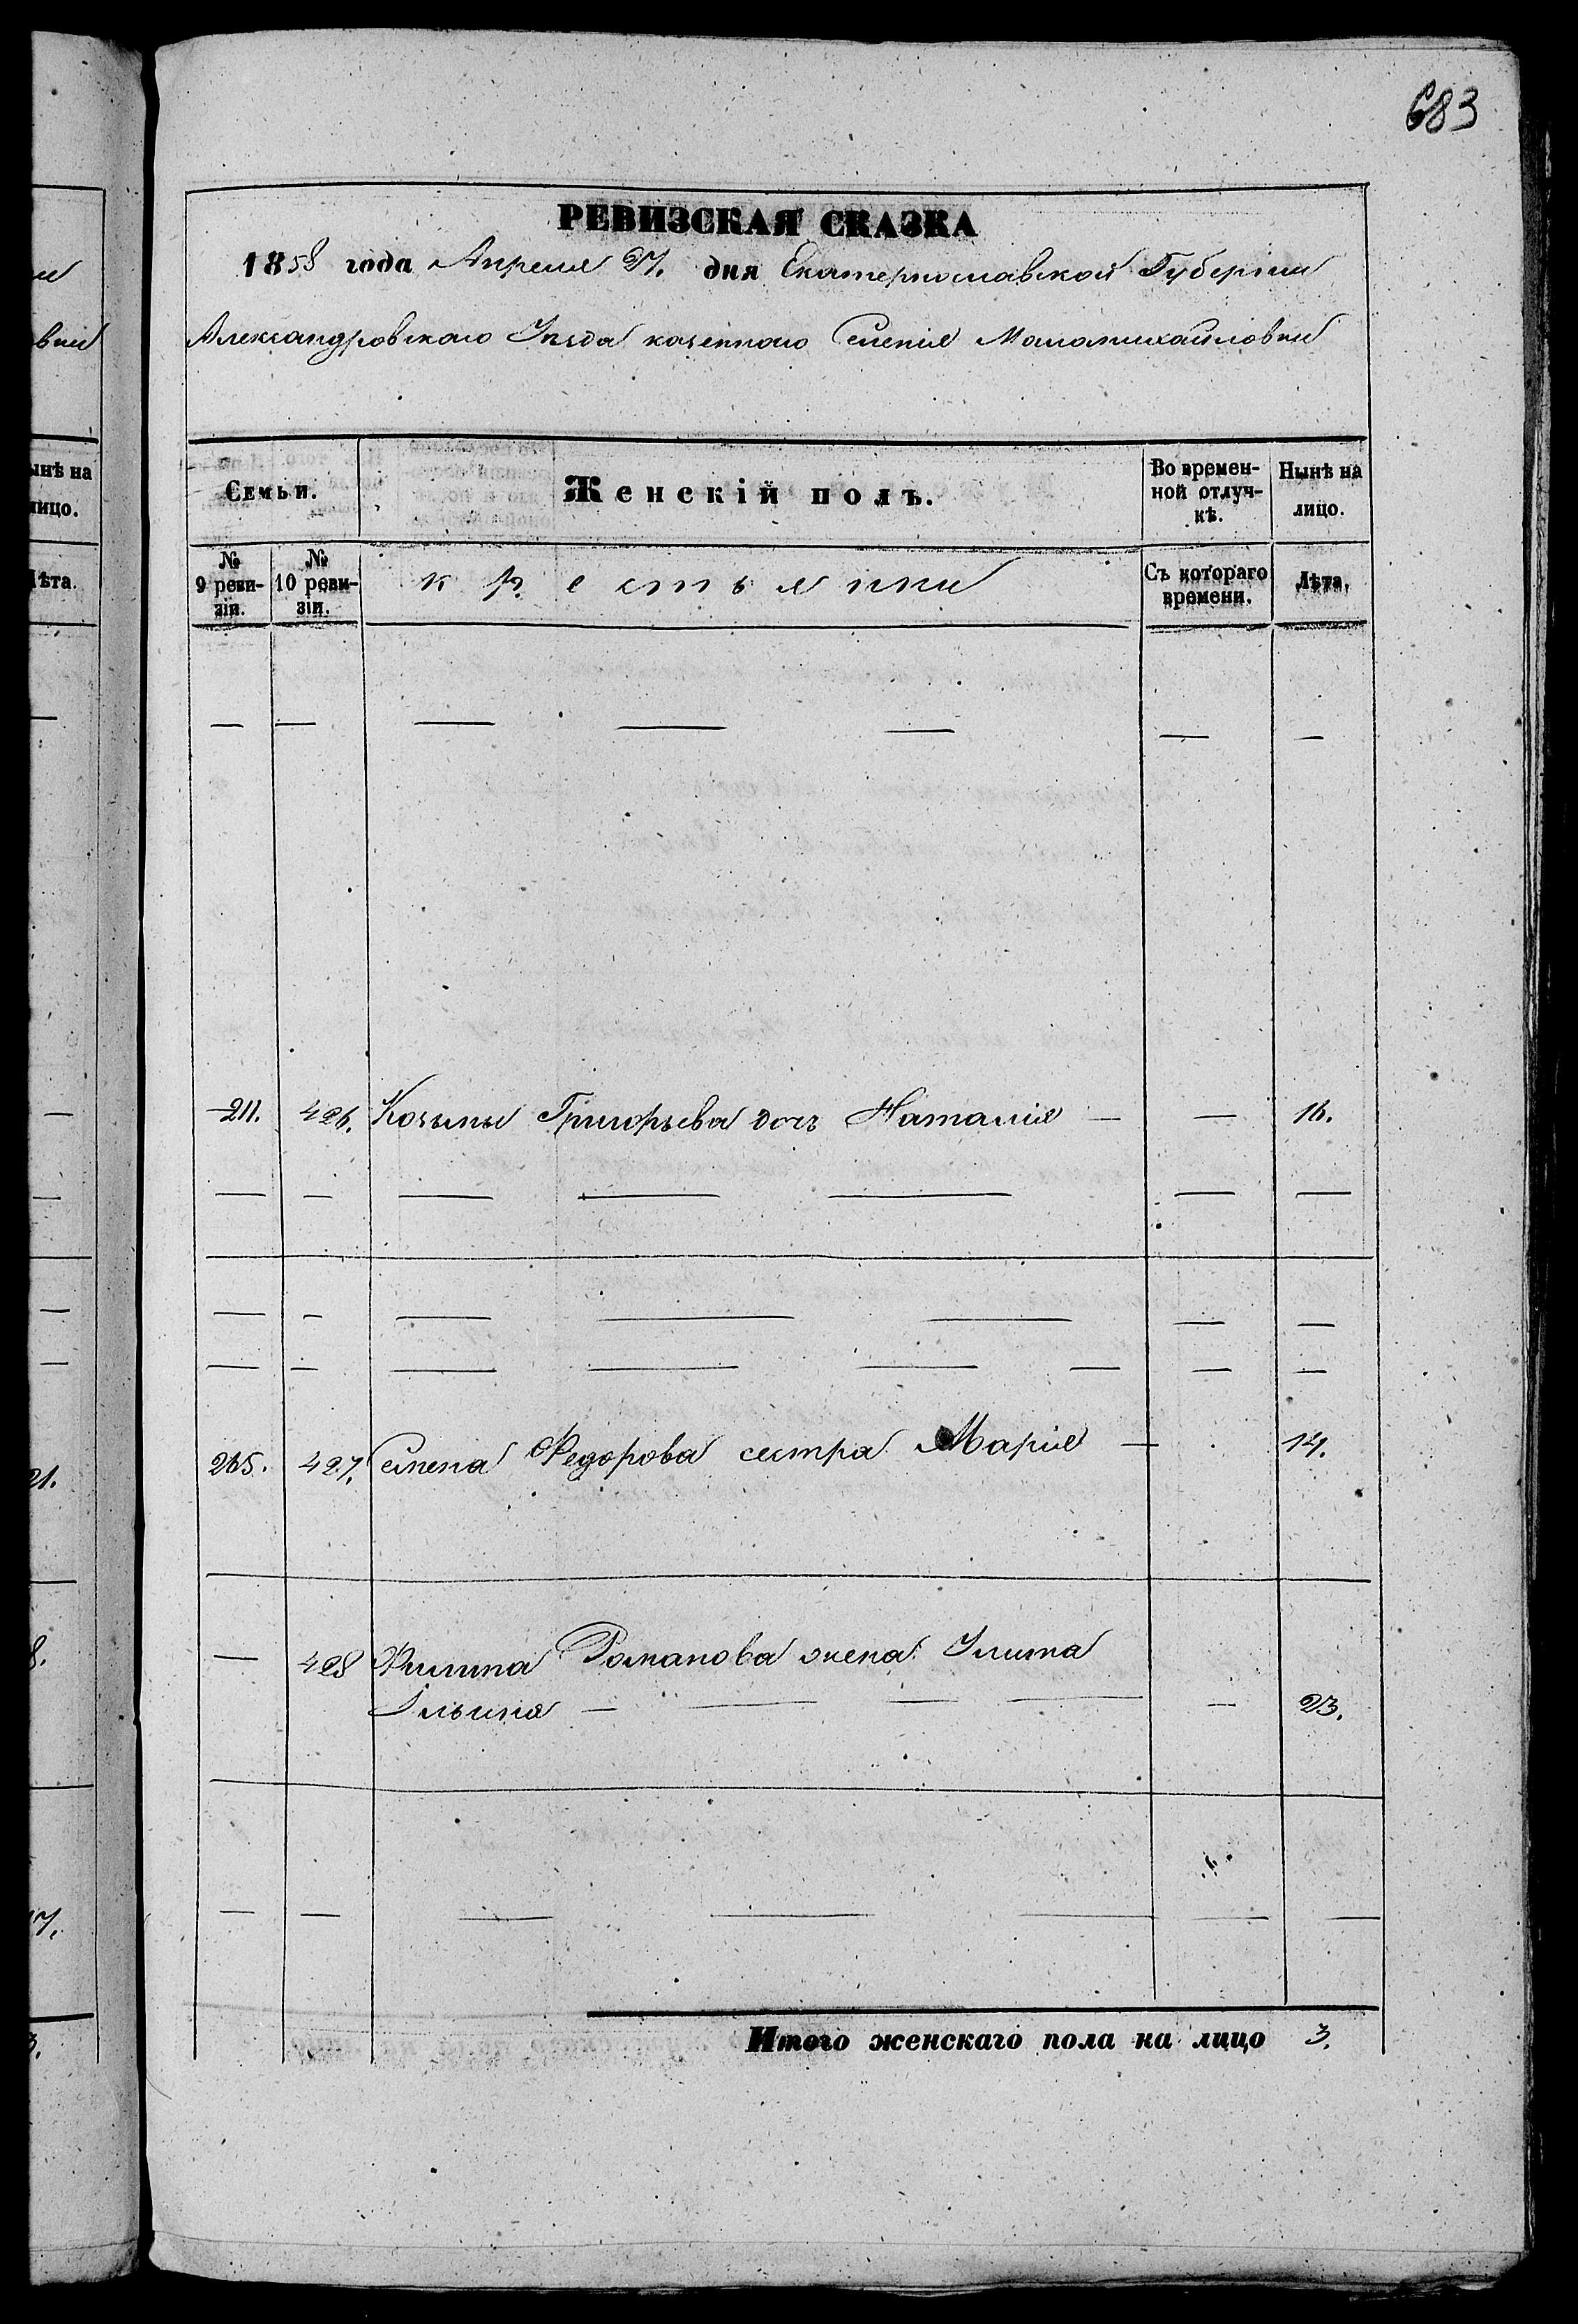 683
РЕВИЗСКАЯ СКАЗКА
1858 года Апреля 27. дня Екатеринославской Губерніи
Александровскаго Уѣзда казеннаго Селенія Маломихайловки
Семьи.
Женскій полъ.
Во времен-
ной отлуч-
кѣ.
Нынѣ на
лицо.
№
9 реви-
зіи.
№
10 реви-
зіи.
крестьянки
Съ котораго
времени.
Лѣта.
211. 426. Козьмы Григорьева дочь Наталія — — 16.
265. 427. Семена Федорова сестра Марія — 14.
— 428 Филипа Романова жена
Ильина — — — — — 23.
Итого женскаго пола на лицо 3.
вки
ынѣ на
лицо.
Лѣта.
21.
8.
17.
3.